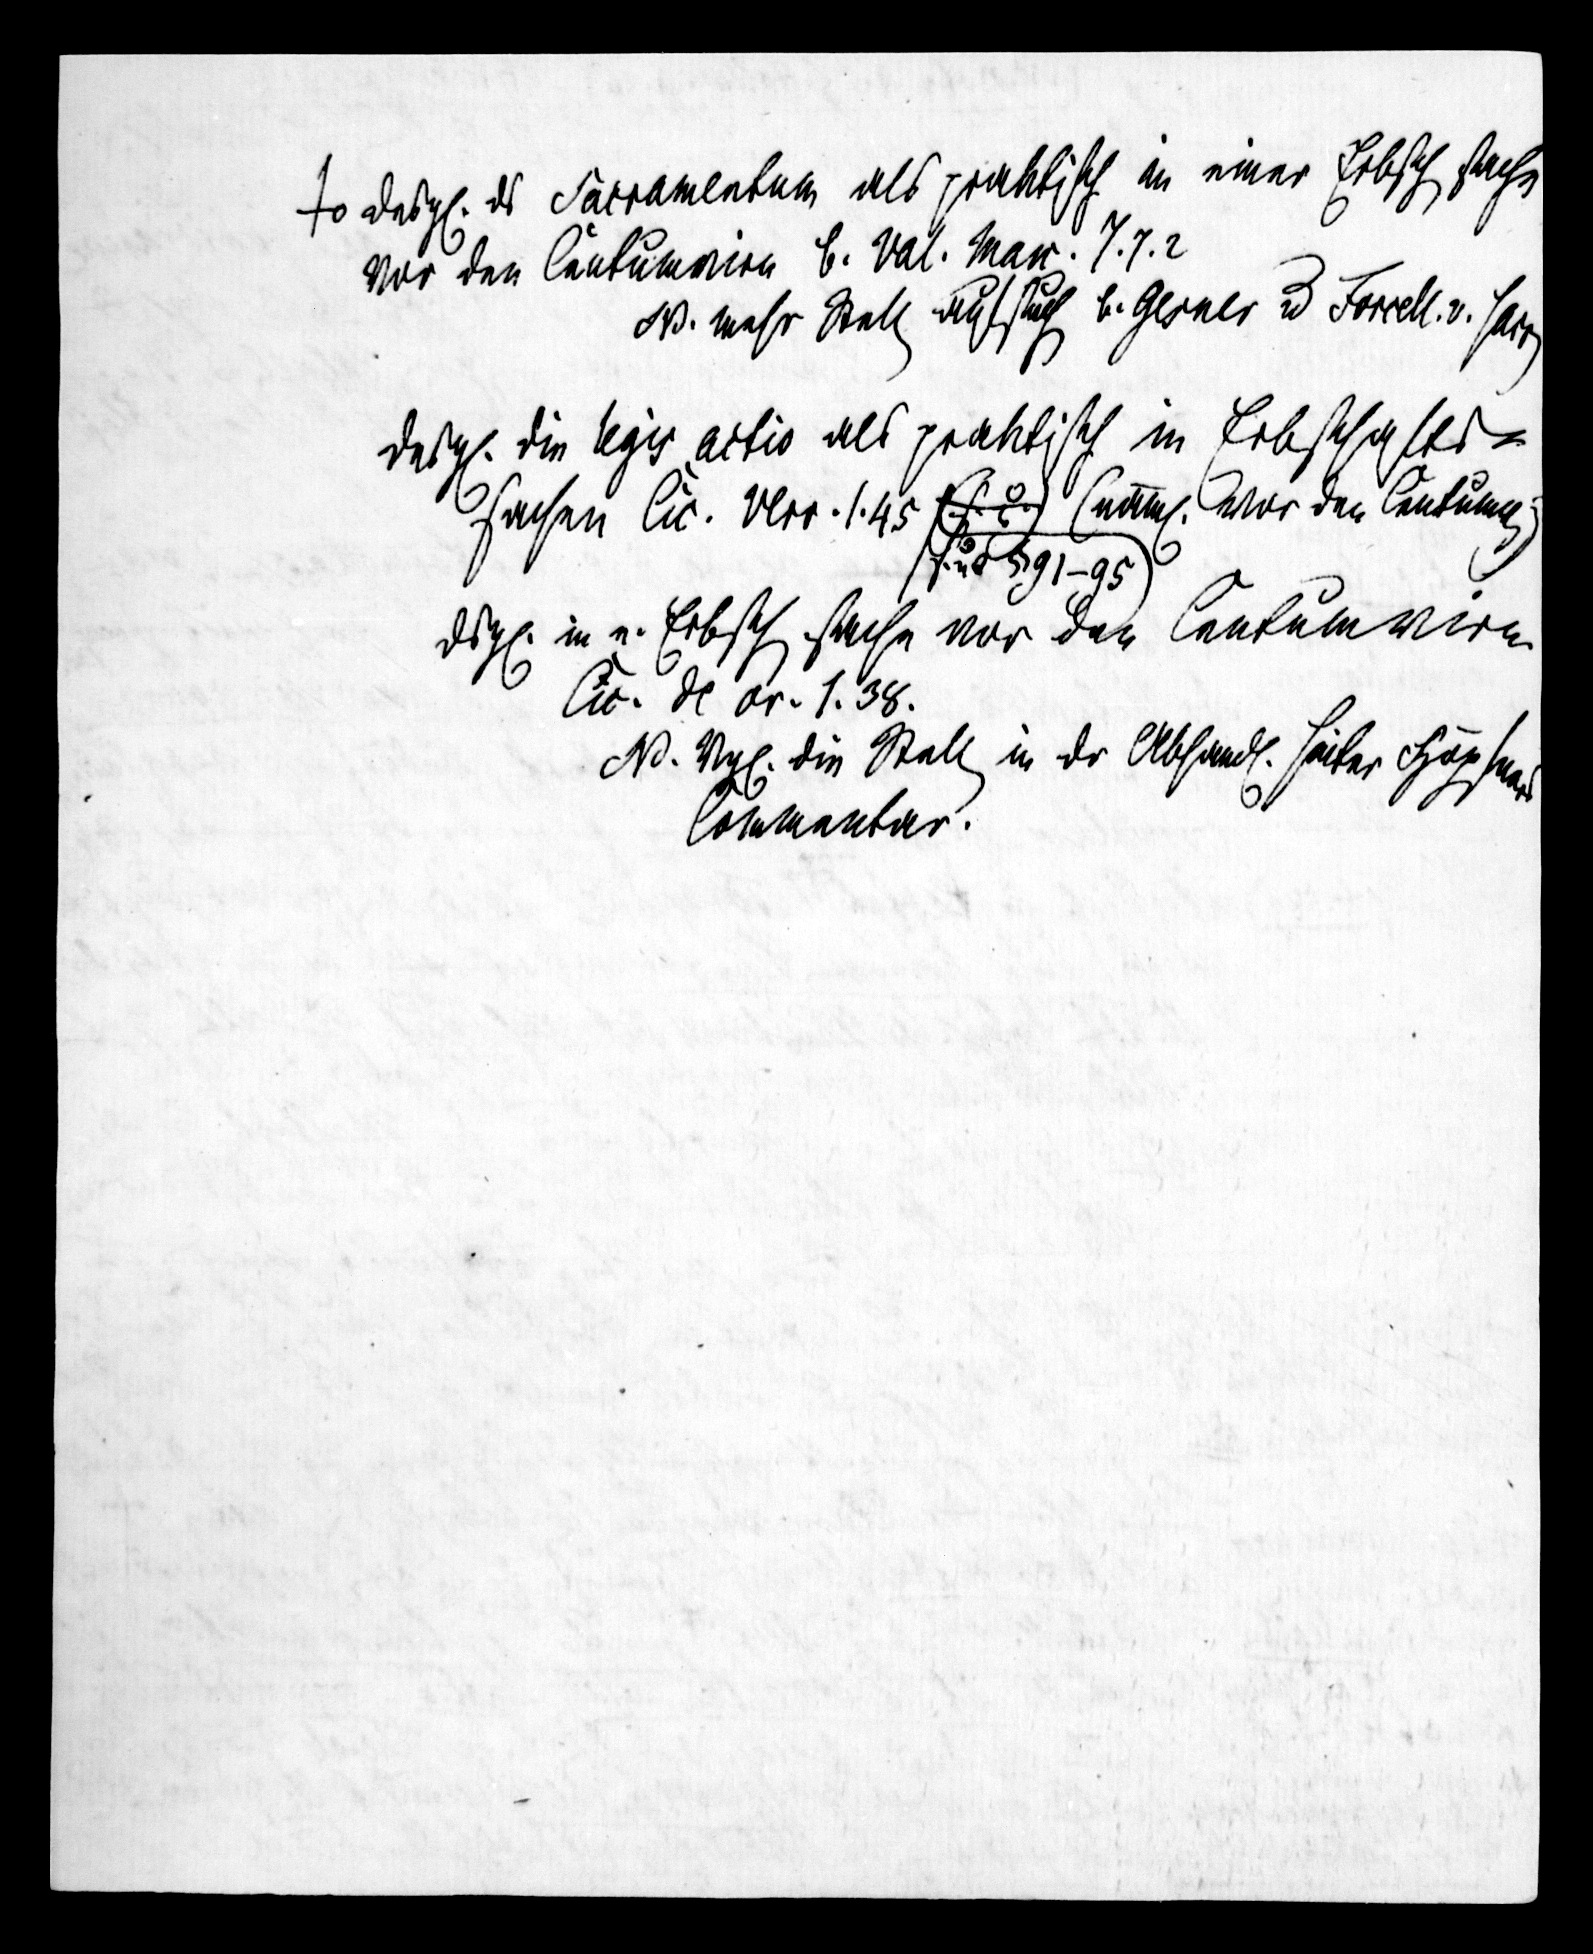 to desgl. ds Sacramentum als praktisch in einer Erbsch sache
vor den Centumvirn b. Val. Max. 7.7.2
NB. mehr Stell aufsuch b. Gesner u Forcell. v. sacr
desgl. die legis actio als praktisch in Erbschafts-
sachen Cic. Verr. 1.45 (s. o.) (näml. vor den Centumv.)
(s. u. S. 91-95)
dsgl. in e. Erbsch sache vor den Centumvirn
Cic. de or. 1. 38.
NB. Vgl. die Stell in dr Abhandl. hinter Höpfners
Commentar.